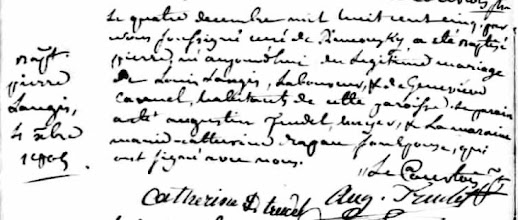 Bapt.
pierre
Langis,
4 xbre
1805
Le quatre decembre mil huit cent cinq, par
nous soussigné curé de Rimousky, a été baptisé
pierre, né aujourd'hui du legitime mariage
de Louis Langis, laboureur, & de Genevieve
Canuel, habitants de cette paroisse. Le parain
a été augustin Trudel, & La maraine
marie-catherine drapau son épouse, qui
ont signé avec nous.
Catherine D trudel Aug. Trudel